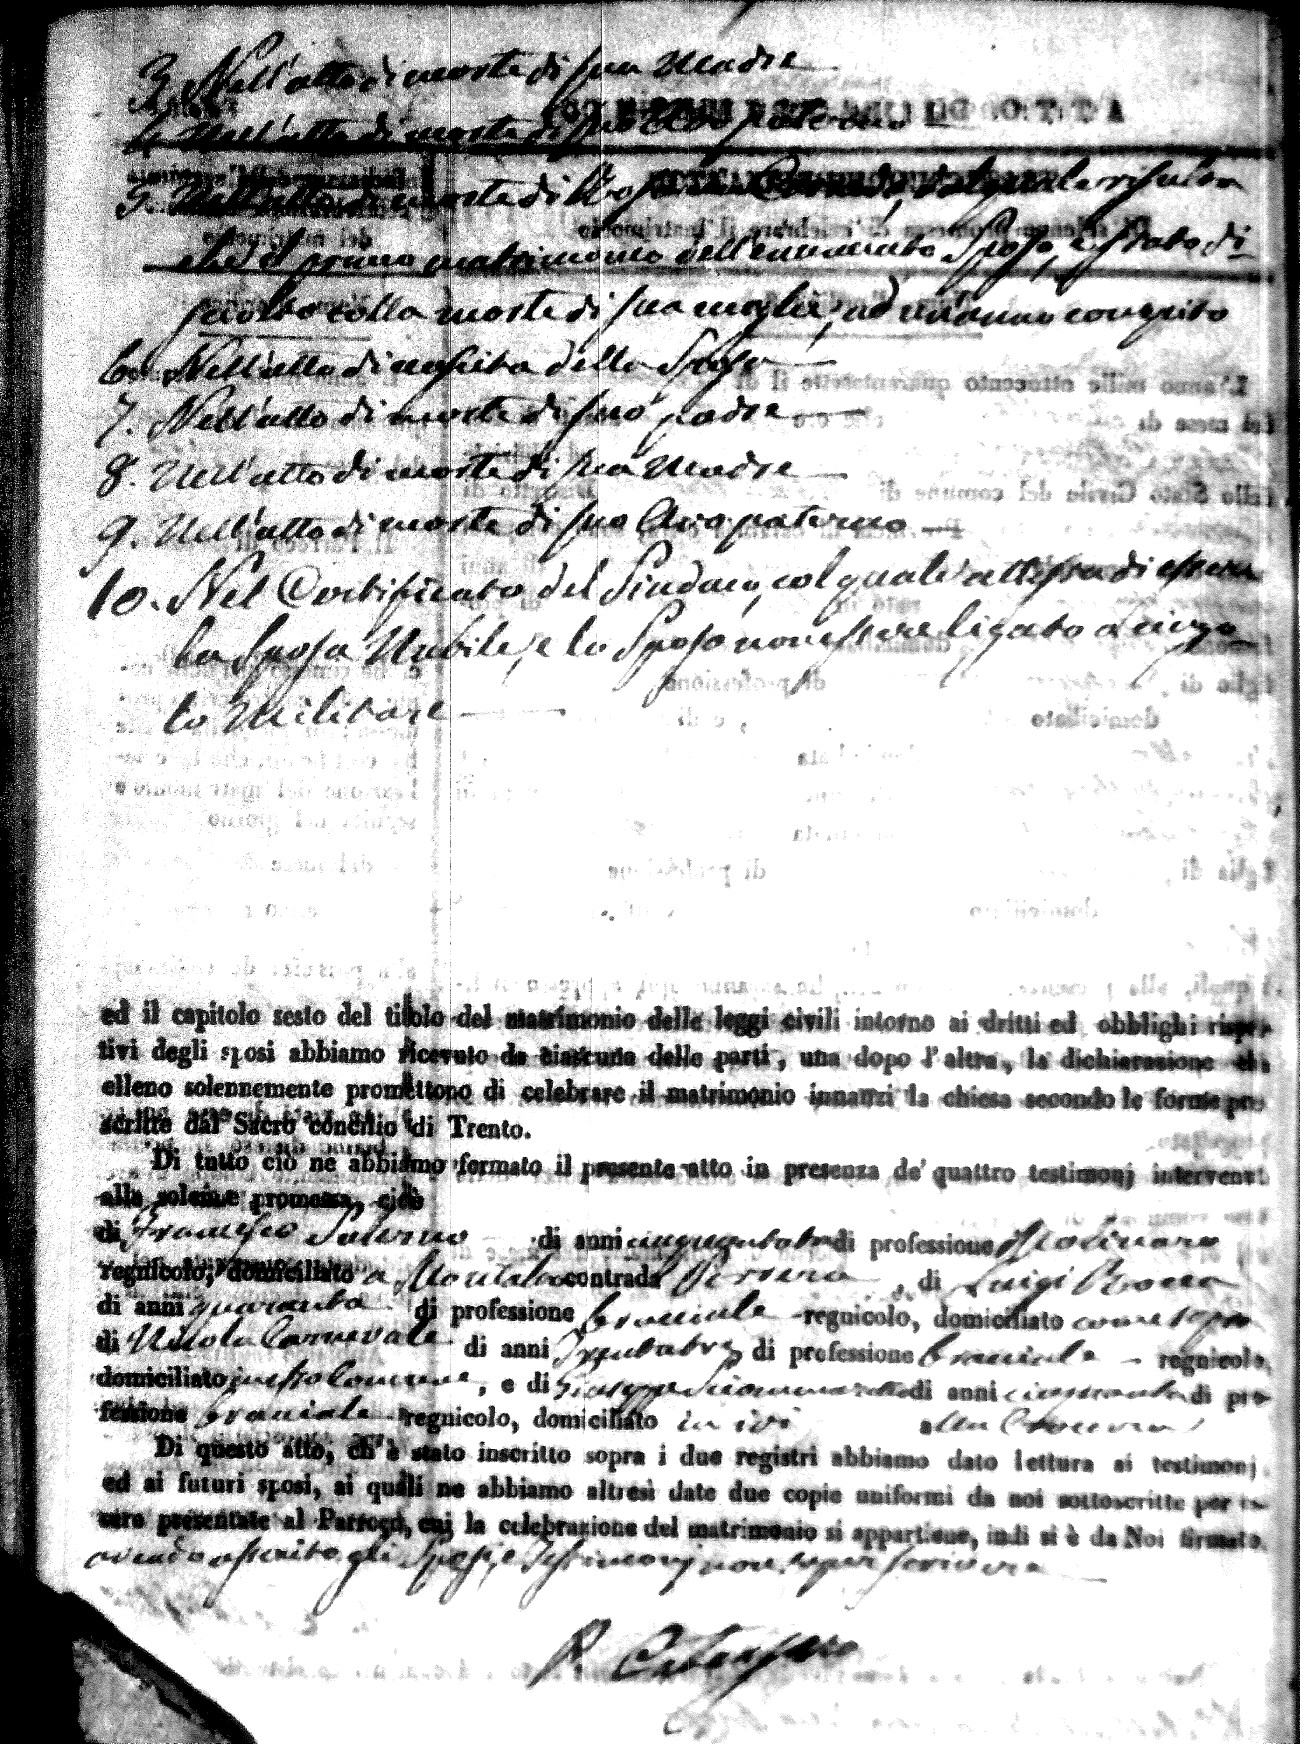 3. Nell'atto di morte di sua Madre
4. Nell'atto di morte di suo Avo paterno
5. Nell'atto di morte di Rosa, dal quale risulta
che il primo matrimonio dell'enunciato Sposo, è stato di-
sciolto colla morte di sua moglie, ad un'anno compito
6. Nell'atto di nascita della Sposa
7. Nell'atto di morte di suo padre
8. Nell'atto di morte di sua Madre
9. Nell'atto di morte di suo Avo paterno
10. Nel Certificato del Sindaco, col quale attesta di essere
la Sposa Nubile, e lo Sposo non essere ligato a servizio
Militare
ed il capitolo sesto del titolo del matrimonio delle leggi civili intorno ai dritti ed obblighi rispet-
tivi degli sposi abbiamo ricevuto da ciascuna delle parti, una dopo l'altra, la dichiarazione che
elleno solennemente promettono di celebrare il matrimonio innanzi la chiesa secondo le forme pre-
scritte dal Sacro concilio di Trento.
Di tutto ciò ne abbiamo formato il presente atto in presenza de' quattro testimonj intervenuti
alla solenne promessa, cioè
di Francesco Salerno di anni cinquantatre di professione Molinaro
regnicolo, domiciliato a contrada , di Luigi Rocca
di anni quaranta di professione bracciale regnicolo, domiciliato come sopra
di Nicola Carnevale di anni trentatre di professione bracciale regnicolo
domiciliato in questo Comune, e di Giuseppe di anni cinquanta di pro-
fessione bracciale regnicolo, domiciliato in ivi
Di questo atto, ch'è stato inscritto sopra i due registri abbiamo dato lettura ai testimonj
ed ai futuri sposi, ai quali ne abbiamo altresì date due copie uniformi da noi sottoscritte per es-
sere presentate al Parroco, cui la celebrazione del matrimonio si appartiene, indi si è da Noi firmato
avendo asserito gli Sposi, e Testimonj non saper scrivere